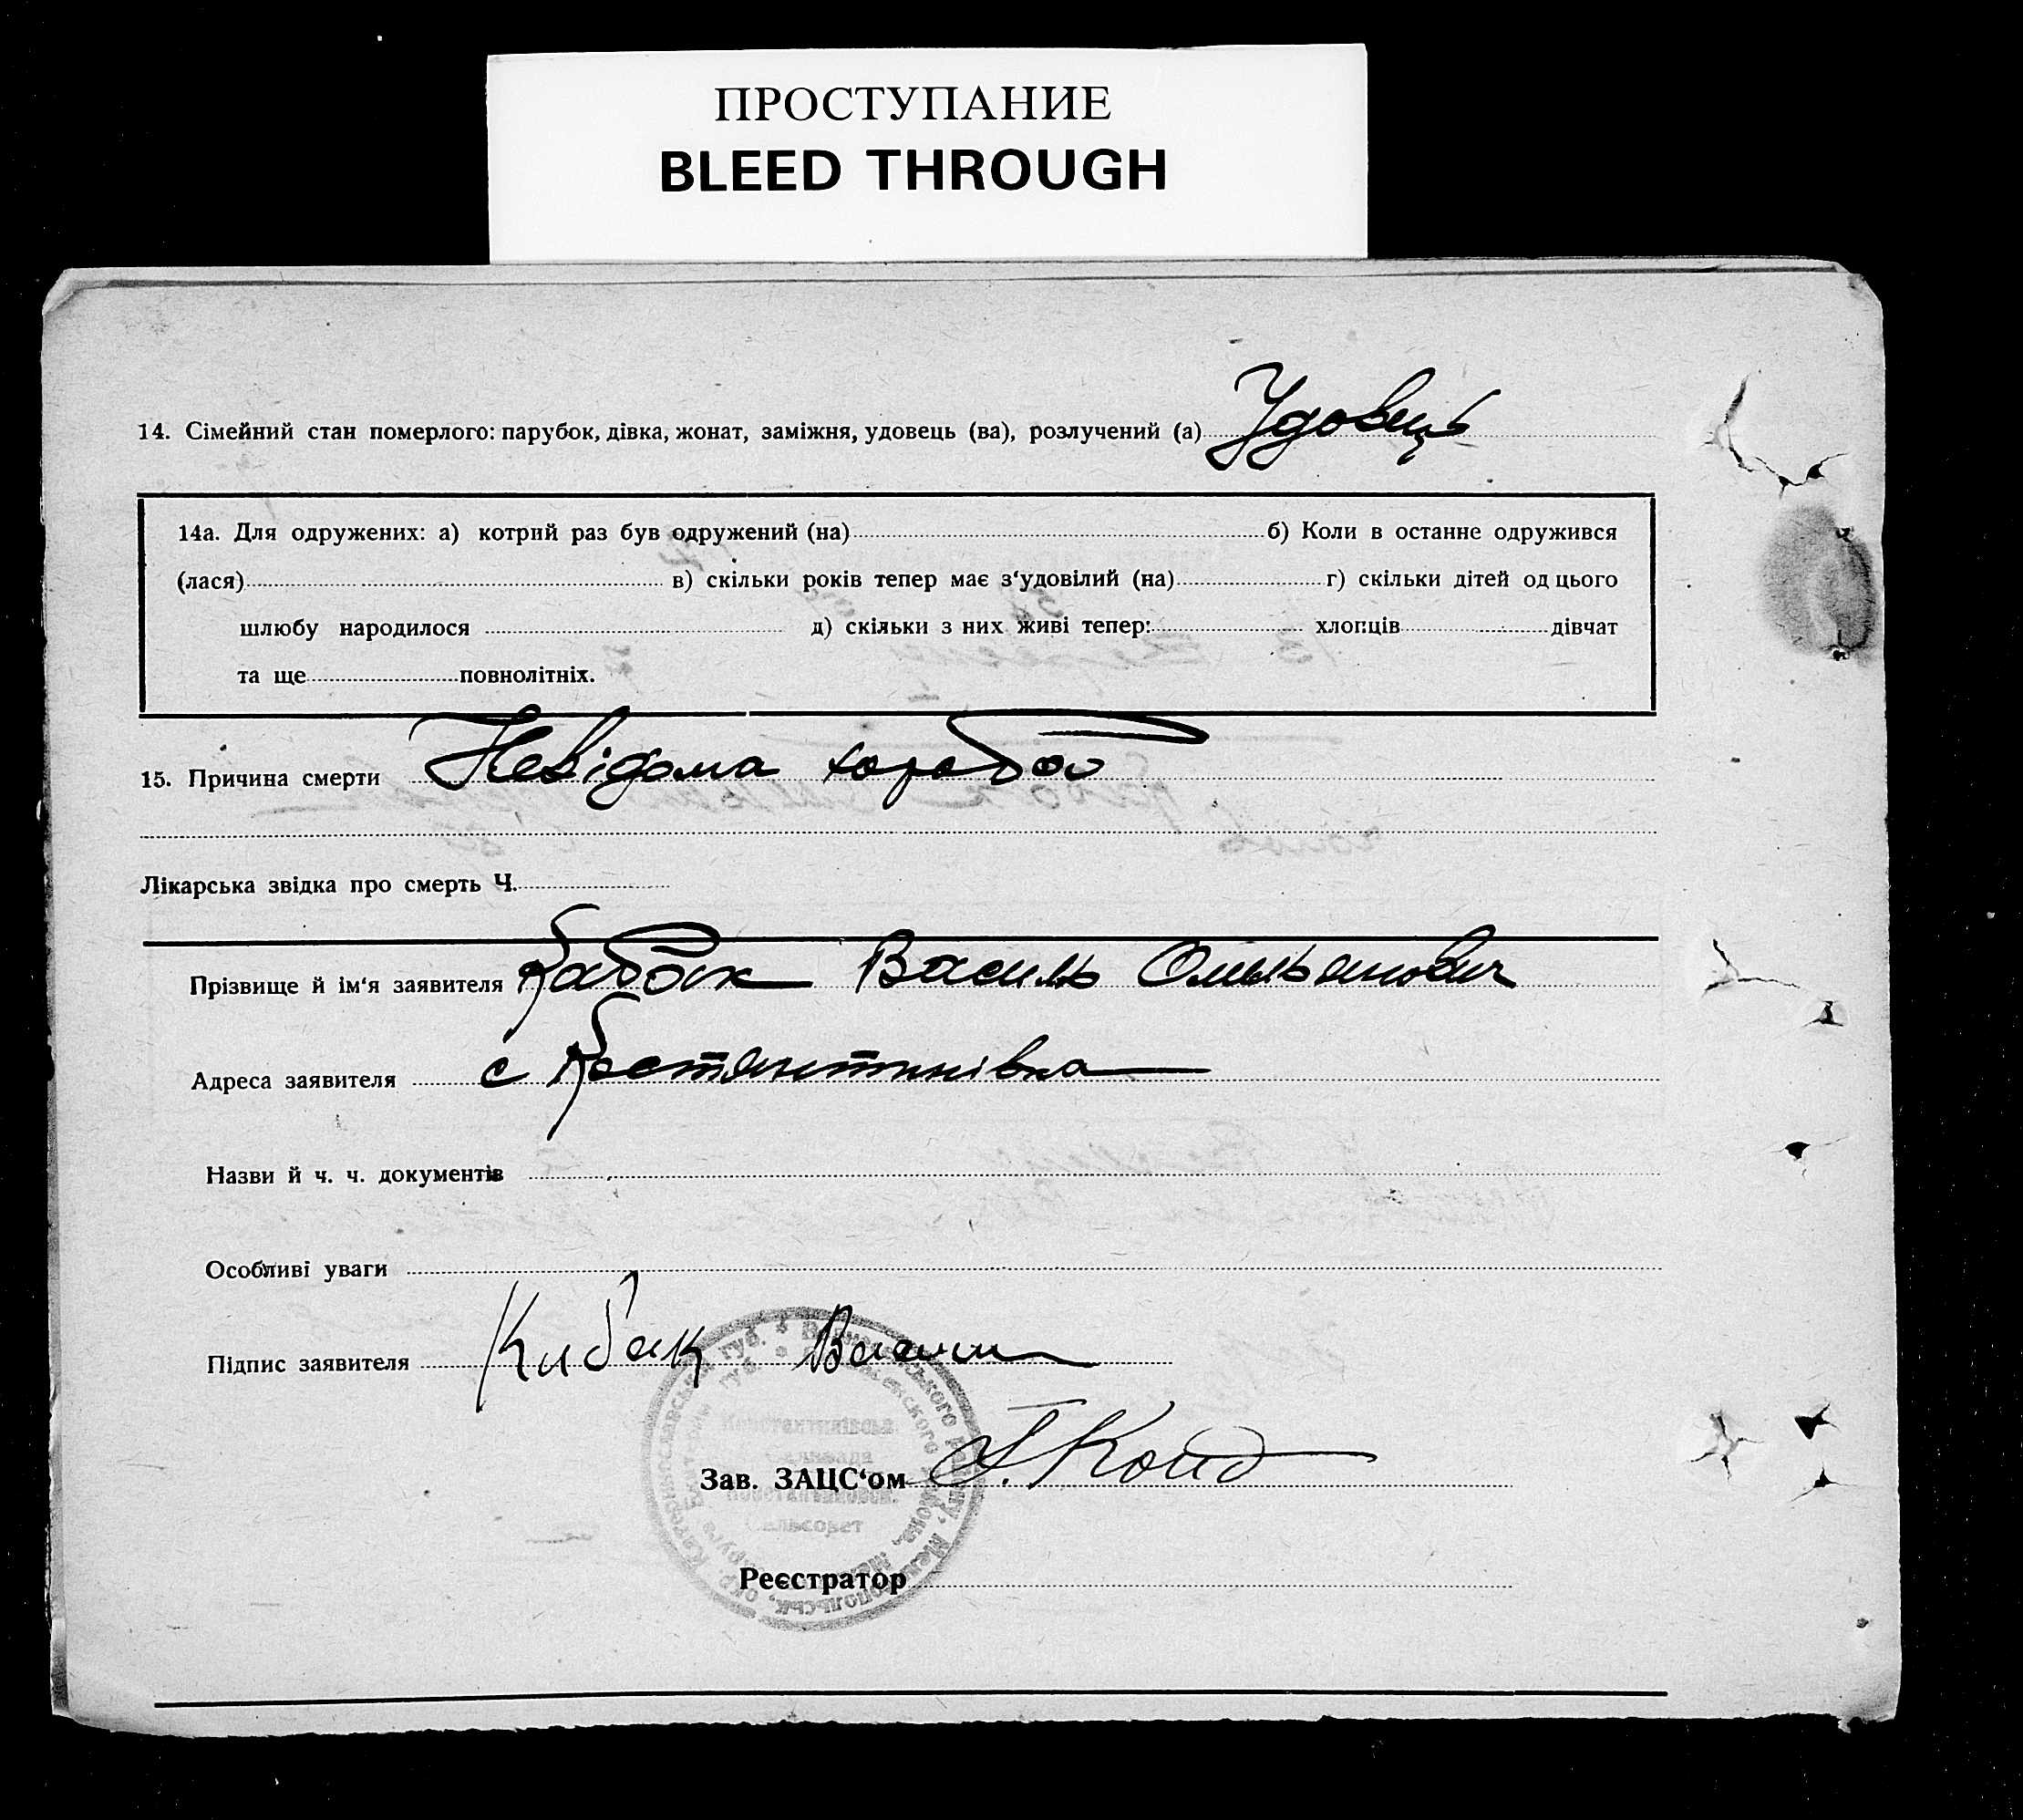 ПРОСТУПАНИЕ
BLEED THROUGH
14. Сімейний стан померлого: парубок, дівка, жонат, заміжня, удовець (ва), розлучений (а) Удовець
14а. Для одружених: а) котрий раз був одружений (на) б) Коли в останнє одружився
(лася) в) скільки років тепер має з‘удовілий (на) г) скільки дітей од цього
шлюбу народилося д) скільки з них живі тепер: хлопців дівчат
та ще повнолітніх.
15. Причина смерти Невідома хороба
Лікарська звідка про смерть Ч.
Прізвище й ім‘я заявителя Василь Омельянович
Адреса заявителя с Костянтинівка
Назви й ч. ч. документів
Особливі уваги
Підпис заявителя
Зав. ЗАЦС‘ом
Реєстратор